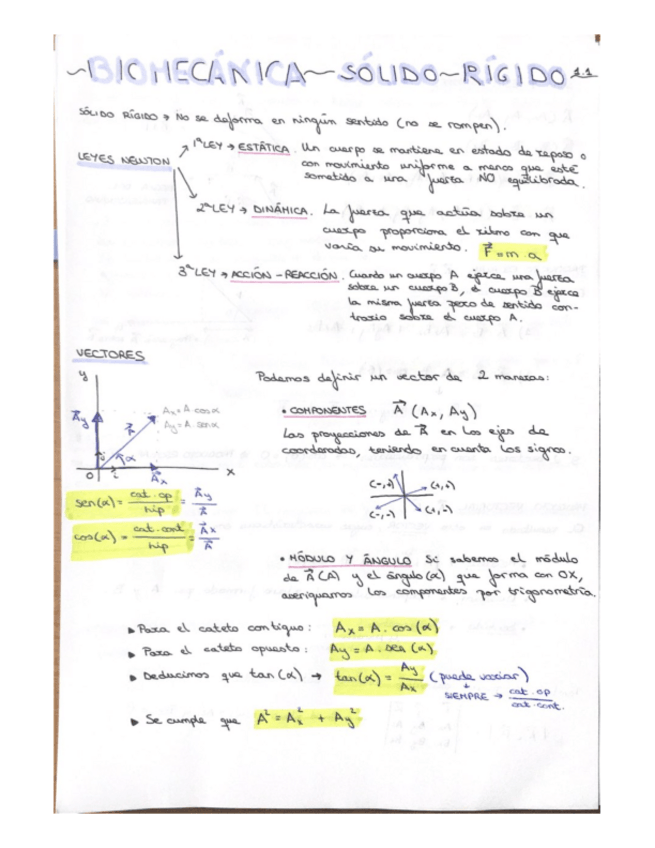 ~BIOMECÁNICA~SÓLIDO~RÍGIDO 1.1
SÓLIDO RÍGIDO → No se deforma en ningún sentido (no se rompen).
LEYES NEWTON
1ª LEY → ESTÁTICA. Un cuerpo se mantiene en estado de reposo o
con movimiento uniforme a menos que esté
sometido a una fuerza NO equilibrada.
2ª LEY → DINÁMICA. La fuerza que actúa sobre un
cuerpo proporciona el ritmo con que
varía su movimiento. F⃗ = m · a
3ª LEY → ACCIÓN - REACCIÓN. Cuando un cuerpo A ejerce una fuerza
sobre un cuerpo B, el cuerpo B ejerce
la misma fuerza pero de sentido con-
trario sobre el cuerpo A.
VECTORES
y
A⃗y
A⃗
Ax = A · cosα
Ay = A · senα
α
j
0
i
A⃗x
x
sen(α) = cat. op / hip = A⃗y / A⃗
cos(α) = cat. cont / hip = A⃗x / A⃗
Podemos definir un vector de 2 maneras:
• COMPONENTES A⃗ (Ax, Ay)
Las proyecciones de A⃗ en los ejes de
coordenadas, teniendo en cuenta los signos.
• MÓDULO Y ÁNGULO Si sabemos el módulo
de A⃗ (A) y el ángulo (α) que forma con OX,
averiguamos los componentes por trigonometría.
▸ Para el cateto contiguo: Ax = A · cos (α)
▸ Para el cateto opuesto: Ay = A · sen (α)
▸ Deducimos que tan (α) → tan(α) = Ay / Ax (puede variar)
SIEMPRE → cat. op / cat. cont.
▸ Se cumple que A² = Ax² + Ay²